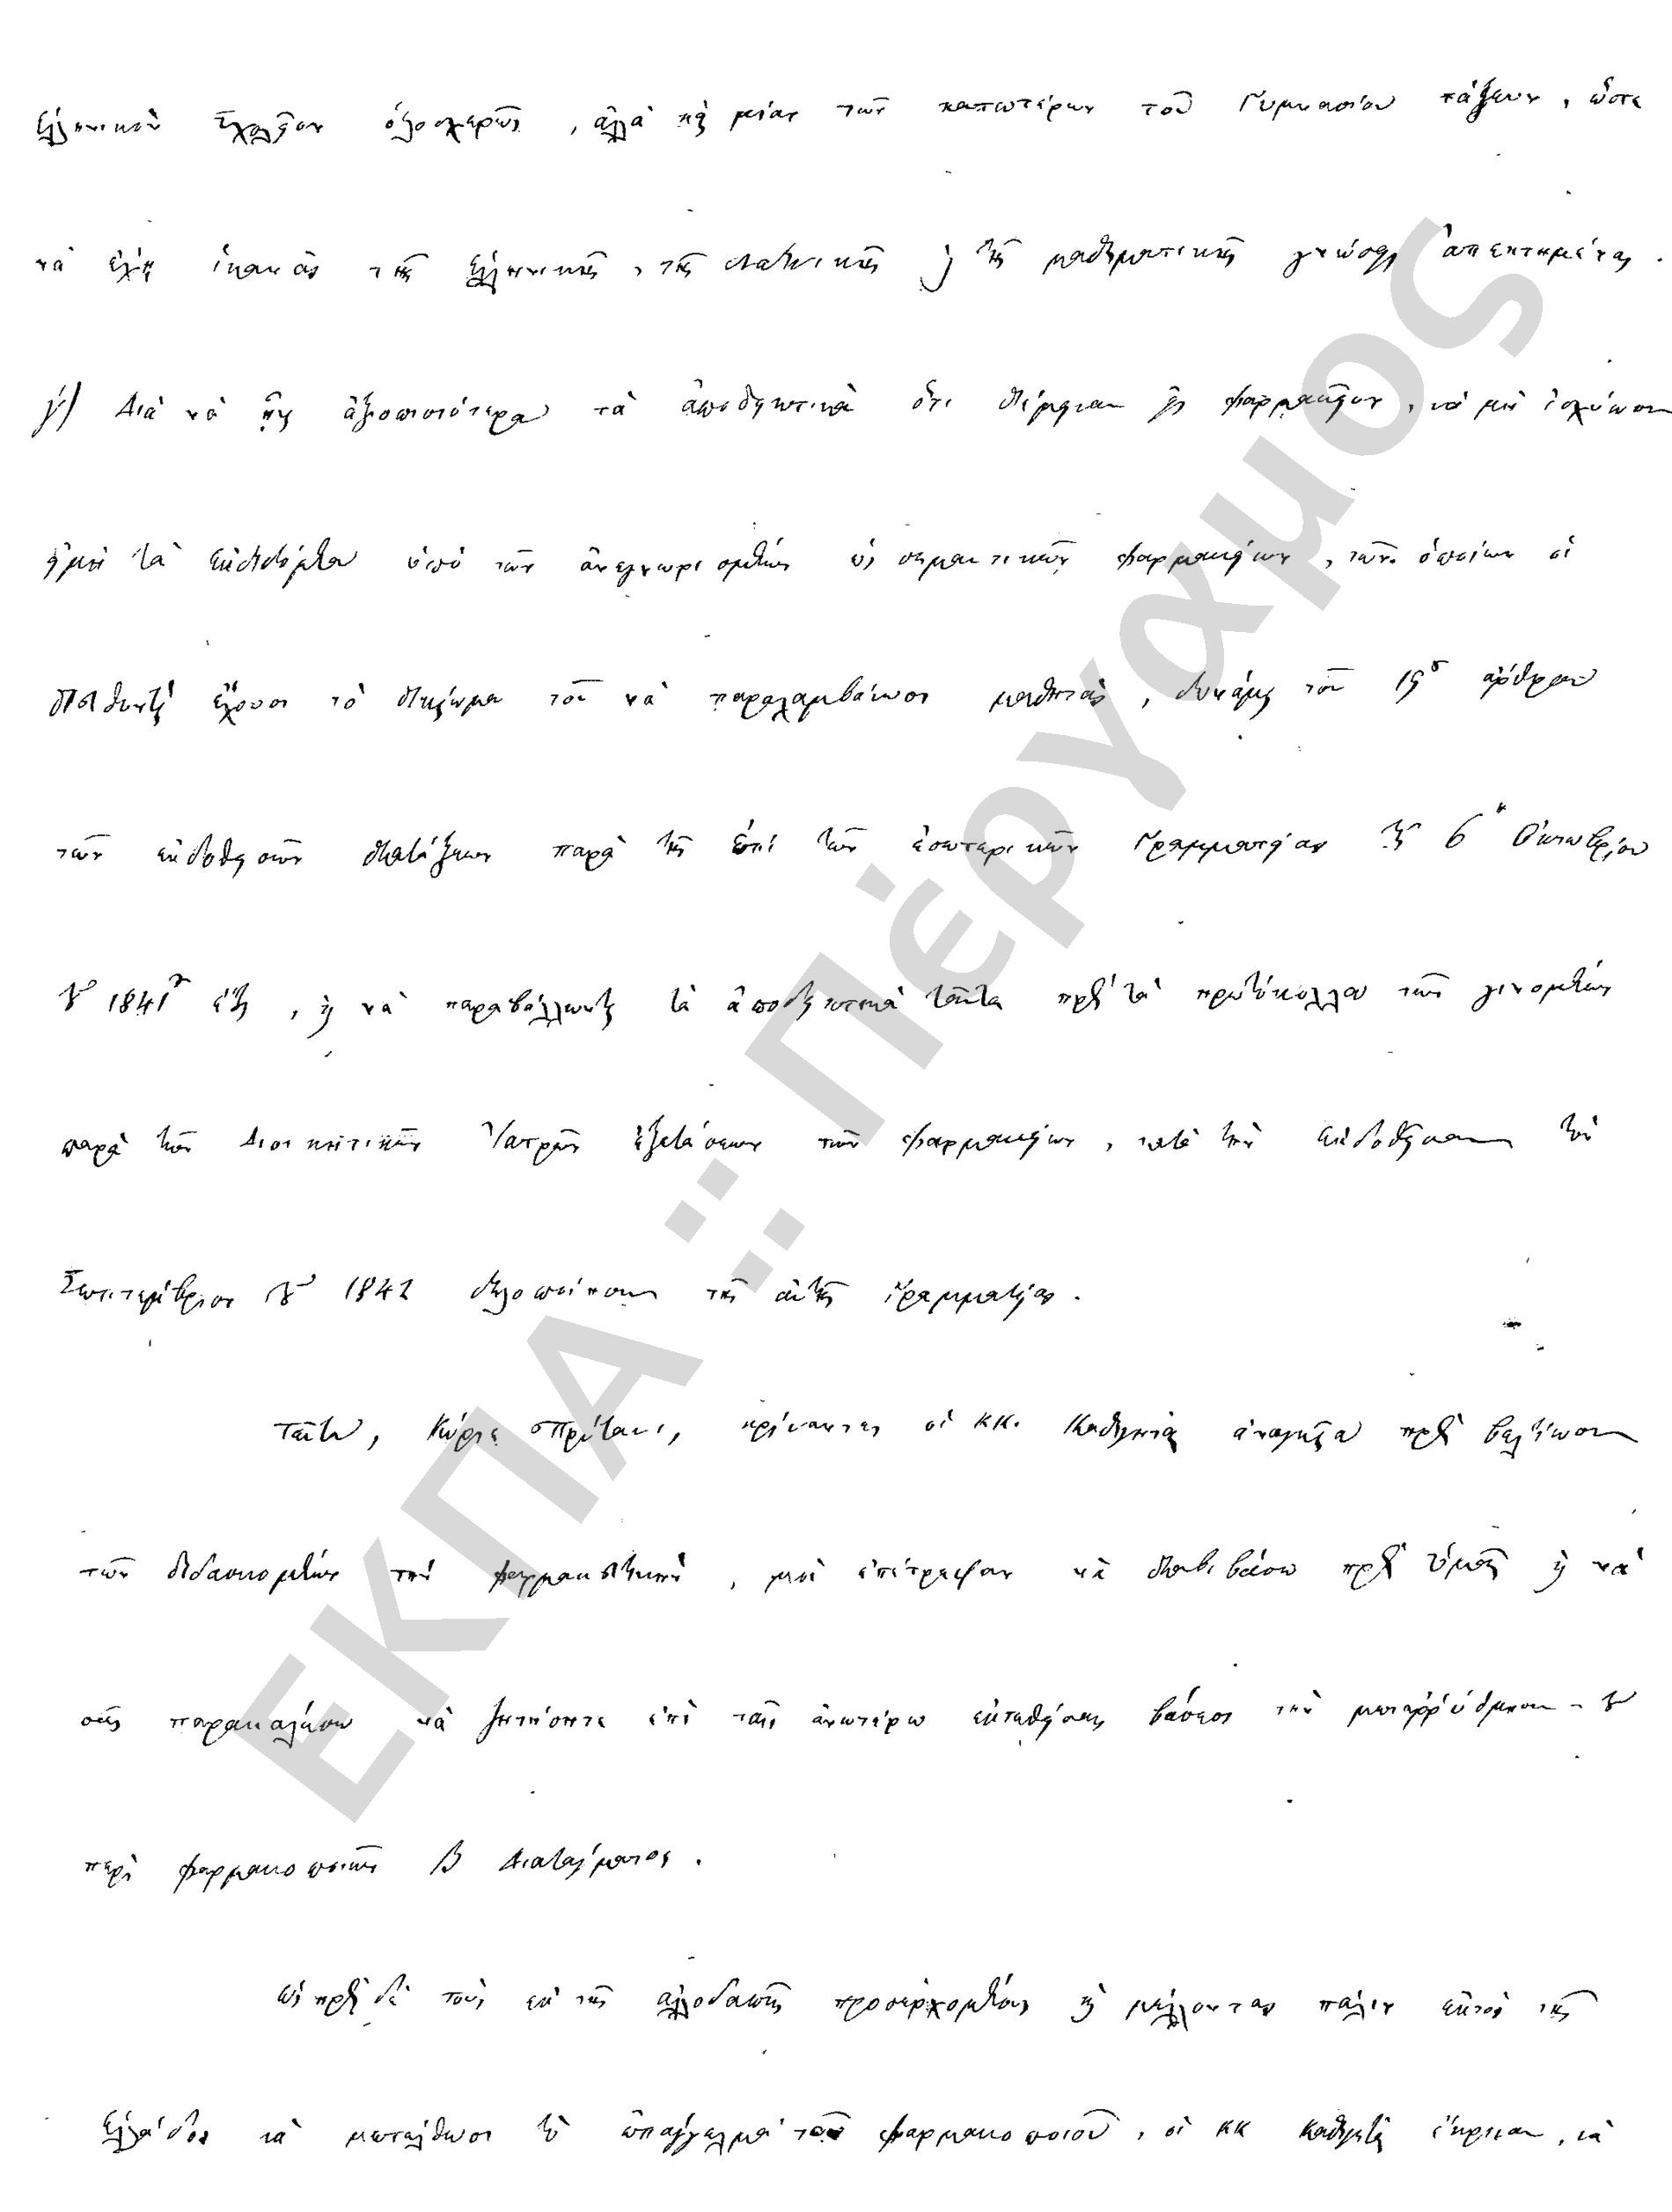 Ἑλληνικὸν Σχολεῖον ὁλοσχερῶς, ἀλλὰ καὶ μίαν τῶν κατωτέρων τοῦ Γυμνασίου τάξεων, ὥστε
νὰ ἔχῃ ἱκανὰς τῆς Ἑλληνικῆς, τῆς Λατινικῆς καὶ τῆς μαθηματικῆς γνώσεις ἀπεκτημένας.
γ) Διὰ νὰ ἦναι ἀξιοπιστότερα τὰ ἀποδεικτικὰ ὅτι διέμειναν εἰς φαρμακεῖον, νὰ μὴ ἰσχύωσιν
εἰμὴ τὰ ἐκδιδόμενα ὑπὸ τῶν ἀνεγνωρισμένων ὡς σημαντικῶν φαρμακείων, τῶν ὁποίων οἱ
διευθυνταὶ ἔχουσι τὸ δικαίωμα τοῦ νὰ παραλαμβάνωσι μαθητὰς, δυνάμει τοῦ ἄρθρου
τῶν ἐκδοθεισῶν διατάξεων παρὰ τῆς ἐπὶ τῶν ἐσωτερικῶν Γραμματείας τῆς 6 Ὀκτωβρίου
τοῦ 1841 ἔτους, καὶ νὰ παραβάλλωνται τὰ ἀποδεικτικὰ ταῦτα πρὸς τὰ πρωτόκολλα τῶν γινομένων
παρὰ τῶν Διοικητικῶν Ἰατρῶν ἐξετάσεων τῶν φαρμακείων, κατὰ τὴν ἐκδοθεῖσαν τὸν
Σεπτέμβριον τοῦ 1842 εἰδοποίησιν τῆς αὐτῆς Γραμματείας.
Ταῦτα, Κύριε Πρύτανι, κρίναντες οἱ ΚΚ. Καθηγηταὶ ἀναγκαῖα πρὸς βελτίωσιν
τῶν διδασκομένων τὴν φαρμακευτικὴν, μοὶ ἐπέτρεψαν νὰ διαβιβάσω πρὸς ὑμᾶς καὶ νὰ
σᾶς παρακαλέσω νὰ ζητήσητε ἐπὶ ταῖς ἀνωτέρω ἐκτεθείσαις βάσεσι τὴν μεταρρύθμισιν τοῦ
περὶ φαρμακοποιῶν Β Διατάγματος.
Ὡς πρὸς δὲ τοὺς ἐκ τῆς ἀλλοδαπῆς προσερχομένους καὶ μέλλοντας πάλιν ἐκτὸς τῆς
Ἑλλάδος νὰ μετέλθωσι τὸ ἐπάγγελμα τοῦ φαρμακοποιοῦ, οἱ ΚΚ Καθηγηταὶ ἔκριναν, νὰ
ΕΚΠΑ :: Πέργαμος